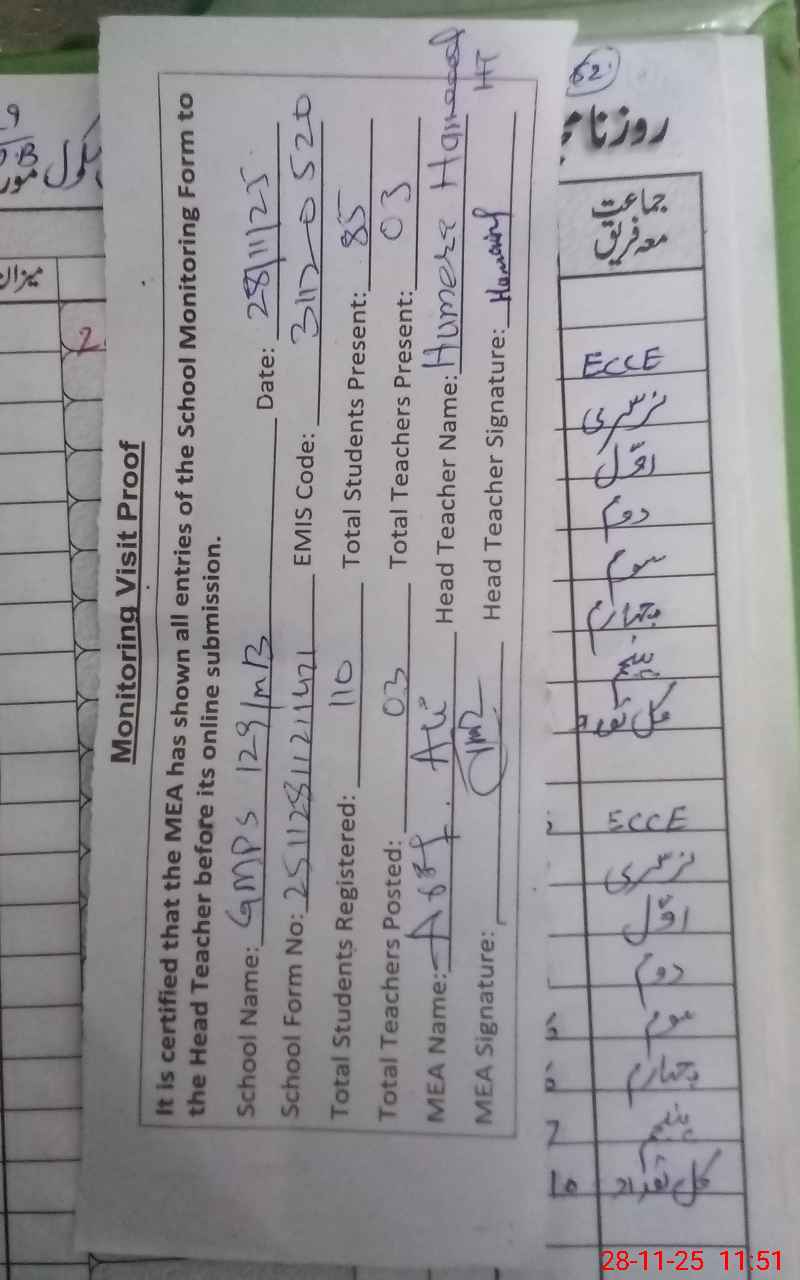 Monitoring Visit Proof
It is certified that the MEA has shown all entries of the School Monitoring Form to
the Head Teacher before its online submission.
School Name: GMPS 129/MB Date: 28/11/25
School Form No: EMIS Code: 31120520
Total Students Registered: 110 Total Students Present: 85
Total Teachers Posted: 03 Total Teachers Present: 03
MEA Name: Asif Ali Head Teacher Name: Humera Hameed
HT
MEA Signature: Head Teacher Signature:
62
جماعت
معہ فریق
ECCE
نرسری
اوّل
دوم
سوم
چہارم
پنجم
کل تعداد
ECCE
نرسری
اوّل
دوم
سوم
چہارم
پنجم
کل تعداد
میزان
2
28-11-25 11:51